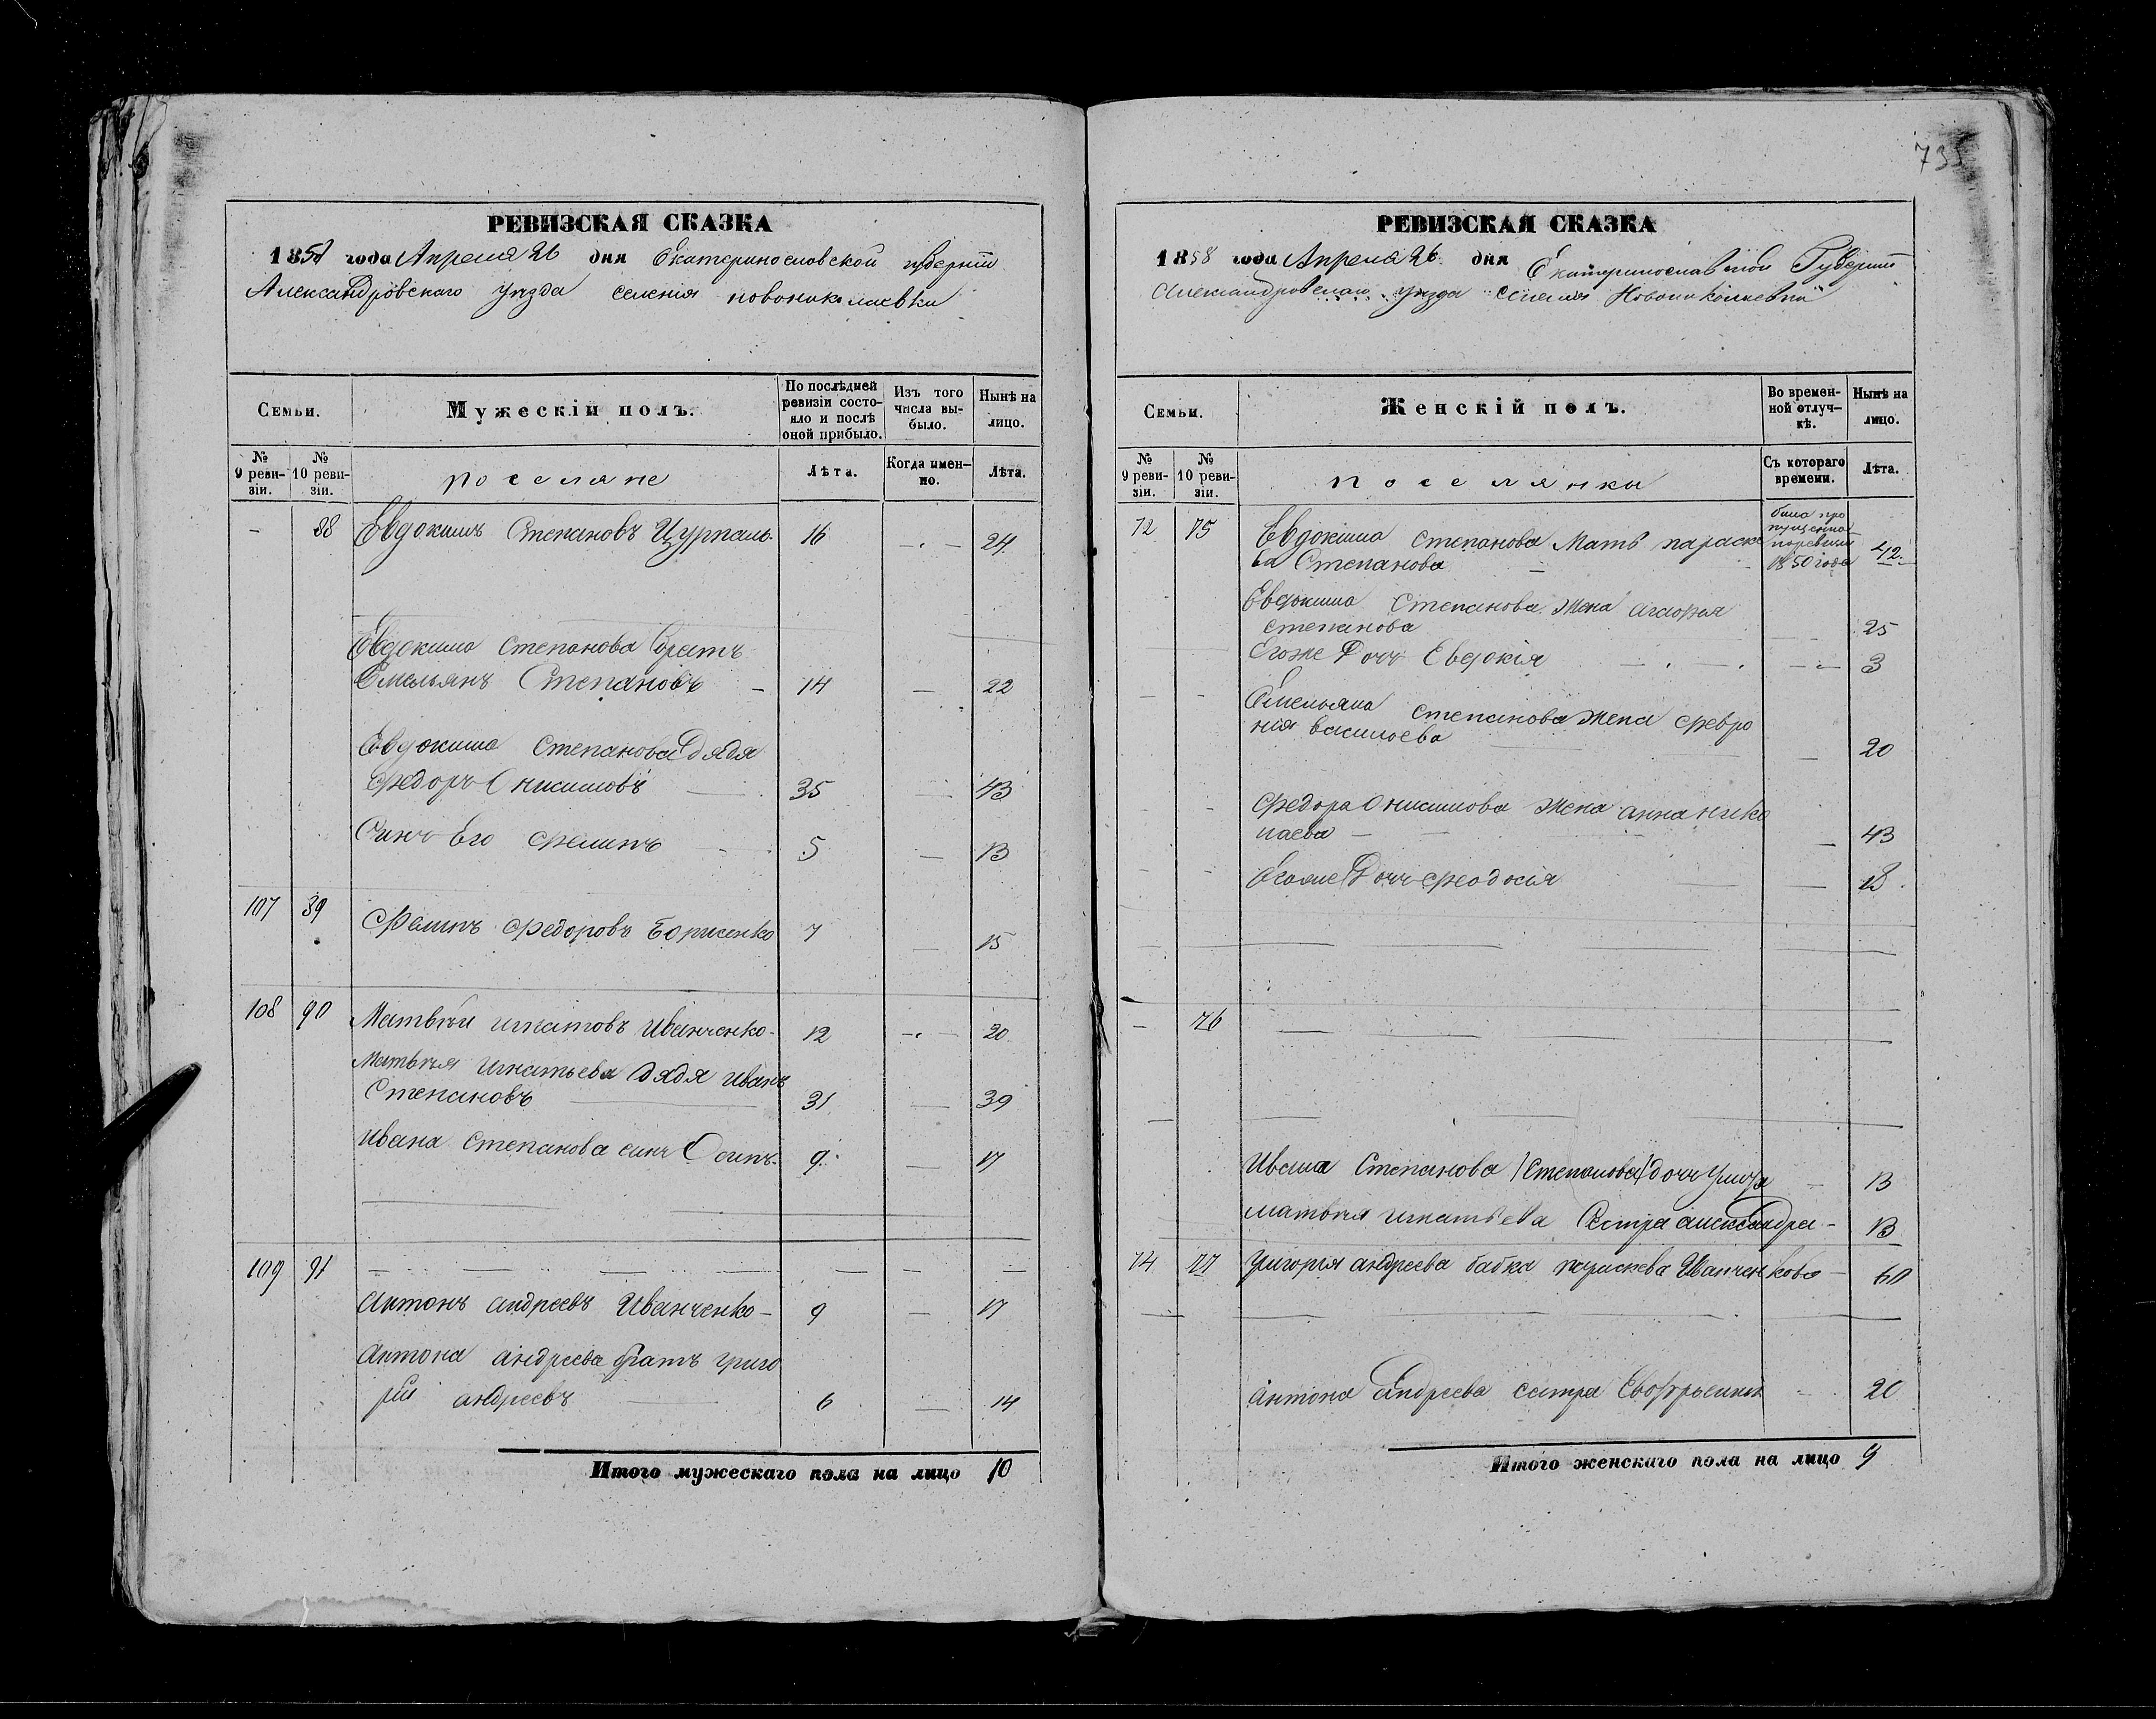 735
РЕВИЗСКАЯ СКАЗКА
1858 года Апреля 26 дня Екатеринославской губернiи
Александровскаго уезда селенiя новониколаевки
Семьи.
Мужескiй полъ.
По послѣдней ревизiи состо-
яло и послѣ
оной прибыло.
Изъ того
числа вы-
было.
Нынѣ на
лицо.
№
9 реви-
зiи.
№
10 реви-
зiи.
поселяне
Лѣта.
Когда имен-
но.
Лѣта.
- 88 Евдокимъ Степановъ 16 - 24
Евдокима Степанова братъ
Емельянъ Степановъ - 14 - 22
Евдокима Степанова Дядя
Федоръ Онисимовъ 35 - 43
Синъ Его Филипъ 5 - 13
107 89 Филипъ Федоровъ Борисенко 7 - 15
108 90 Матвѣй игнатовъ Иванченко - 12 - 20
Матвѣя Игнатьева дядя иванъ
Степановъ 31 - 39
ивана Степанова синъ Осипъ. 9 - 17
109 91 - - - -
Антонъ андреевъ Иванченко - 9 - 17
Антона андреева братъ григо
рiй андреевъ 6 - 14
Итого мужескаго пола на лицо 10
РЕВИЗСКАЯ СКАЗКА
1858 года Апреля 26 дня Екатеринославской Губернiи
Александровскаго уезда селенiя Новониколаевки
Семьи.
Женскiй полъ.
Во времен-
ной отлуч-
кѣ.
Нынѣ на
лицо.
№
9 реви-
зiи.
№
10 реви-
зiи.
поселянки
Съ котораго
времени.
Лѣта.
72 75 Евдокима Степанова Мать параске
ва Степанова
была про
пущенна
поревизiи
1850 года
42
Евдокима Степанова жена агафия
Степанова 25
Егоже Дочь Евдокiя - 3
Емельяна Степанова жена февро
нiя васильева - 20
Федора Онисимова жена анна нико
лаева - 43
Егоже Дочь феодосiя - 18
- 76
Ивана Степанова /Степанова/ дочь - 13
матвѣя игнатьева Сестра александра - 13
74 77 григорiя андреева бабка параскева Иванченкова - 60
антона андреева сестра - 20
Итого женскаго пола на лицо 9